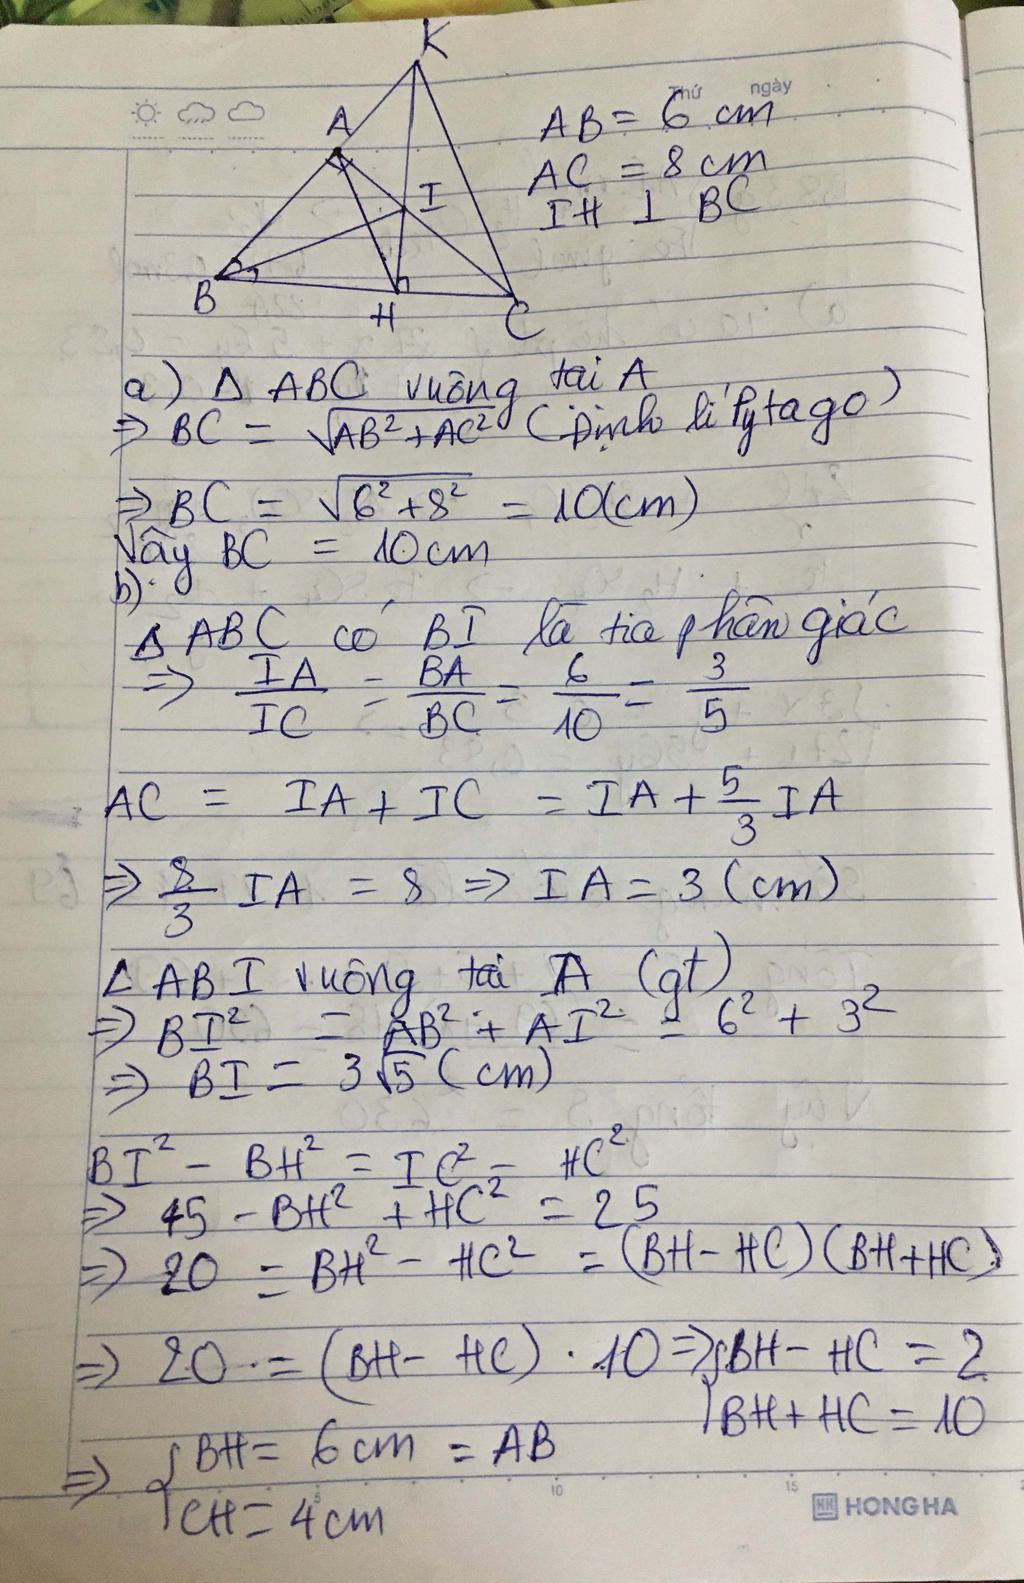 K
Thứ ngày
A
AB = 6 cm
AC = 8 cm
I
IH ⊥ BC
B
H
C
a) Δ ABC vuông tại A
=> BC = √AB²+AC² (Định lí Pytago)
=> BC = √6²+8² = 10(cm)
Vậy BC = 10cm
b)
Δ ABC có BI là tia phân giác
=> IA/IC = BA/BC = 6/10 = 3/5
AC = IA + IC = IA + 5/3 IA
=> 8/3 IA = 8 => IA = 3 (cm)
Δ ABI vuông tại A (gt)
=> BI² = AB² + AI² = 6² + 3²
=> BI = 3√5 (cm)
BI² - BH² = IC² - HC²
=> 45 - BH² + HC² = 25
=> 20 = BH² - HC² = (BH - HC)(BH+HC)
=> 20 = (BH - HC) . 10 => { BH - HC = 2
BH + HC = 10
=> { BH = 6 cm = AB
CH = 4 cm
5 10 15
HH HONG HA